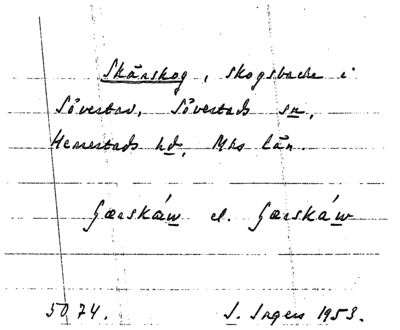 Skårskog, skogsbacke i
Sövestad, Sövestads sn,
Herrestads hd, Mhs län.
Gærskáw el. Gærskáw
5074. S. Ingers 1953.